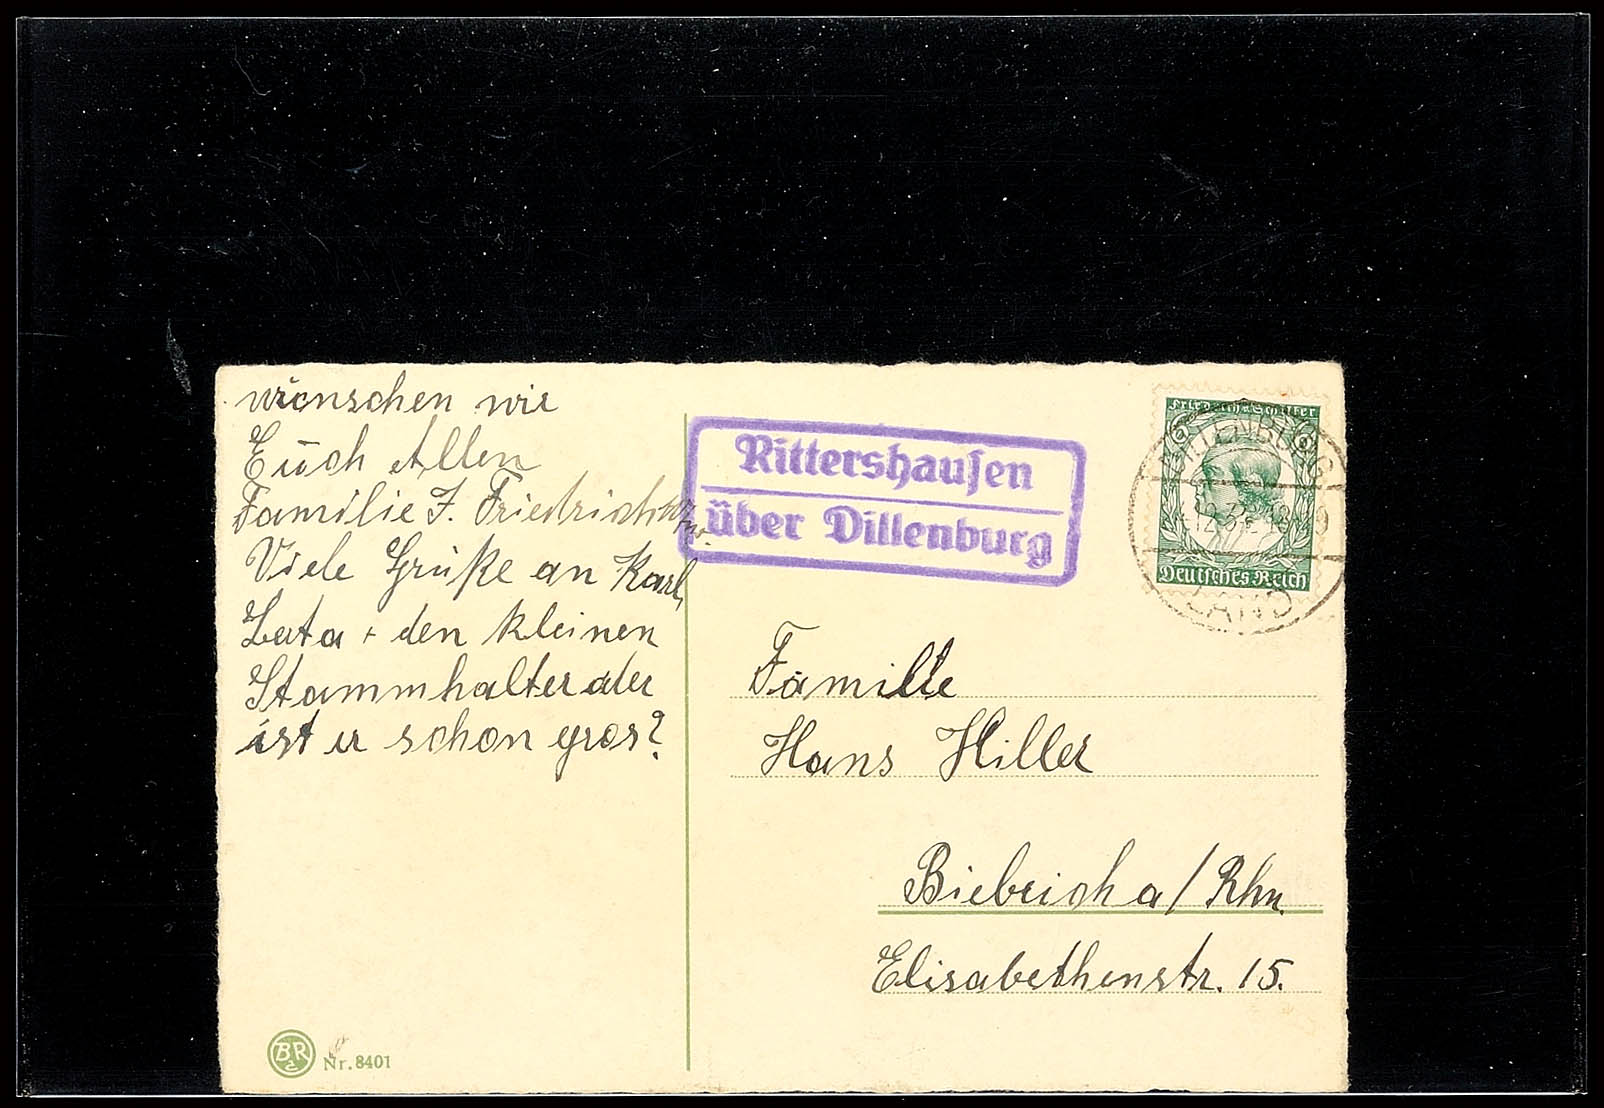 wünschen wir
Euch Allen
Familie J. Friedrich
Viele Grüße an Karl,
+ den kleinen
Stammhalter
ist er schon gros?
Rittershausen
über Dillenburg
Friedrich v. Schiller
6 6
Deutsches Reich
DILLENBURG
LAND
Familie
Hans Hiller
Biebrich a/Rhn.
Elisabethenstr. 15.
BR
Nr. 8401